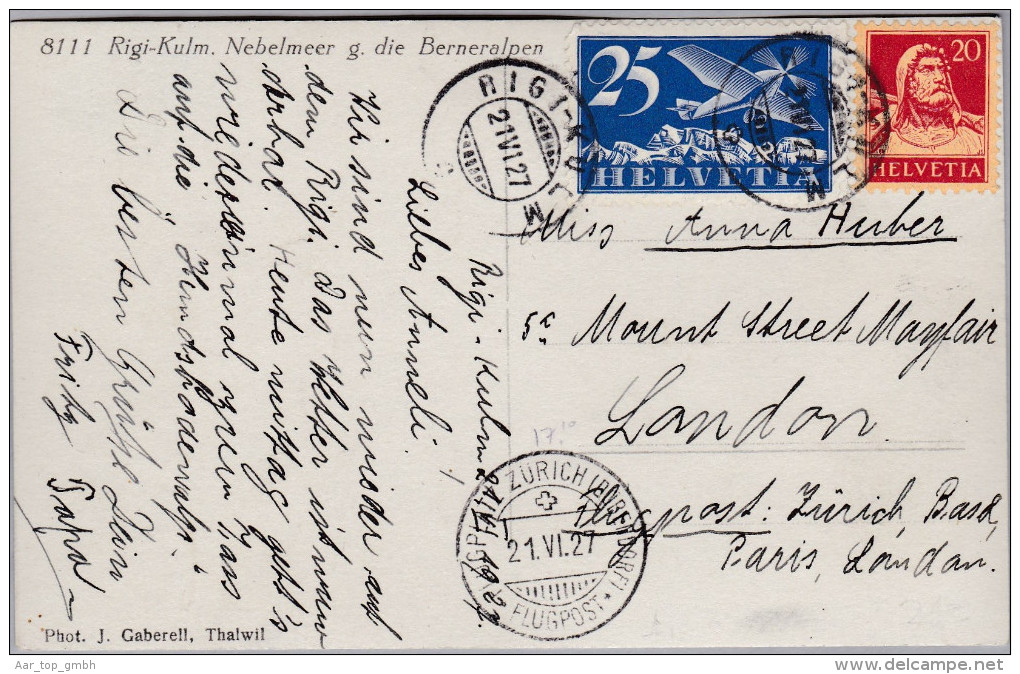 8111 Rigi-Kulm. Nebelmeer g. die Berneralpen
25
HELVETIA
20
HELVETIA
RIGI-KULM
21.VI.27
RIGI-KULM
21.VI.27
Miss Anna Huber
5c Mount Street Mayfair
London.
Flugpost: Zürich, Basel,
Paris, London.
17.10
FLUGPLATZ ZÜRICH (DÜBENDORF)
21.VI.27
* FLUGPOST *
Rigi-Kulm 21. 1927.
Liebes Anneli!
Wir sind nun wieder auf
dem Rigi. Das Wetter ist wun-
derbar. Heute mittag geht's
wieder einmal
auf die
Die besten Grüsse Dein
Fritz Papa
Phot. J. Gaberell, Thalwil
Aar_top_gmbh
delcampe.net